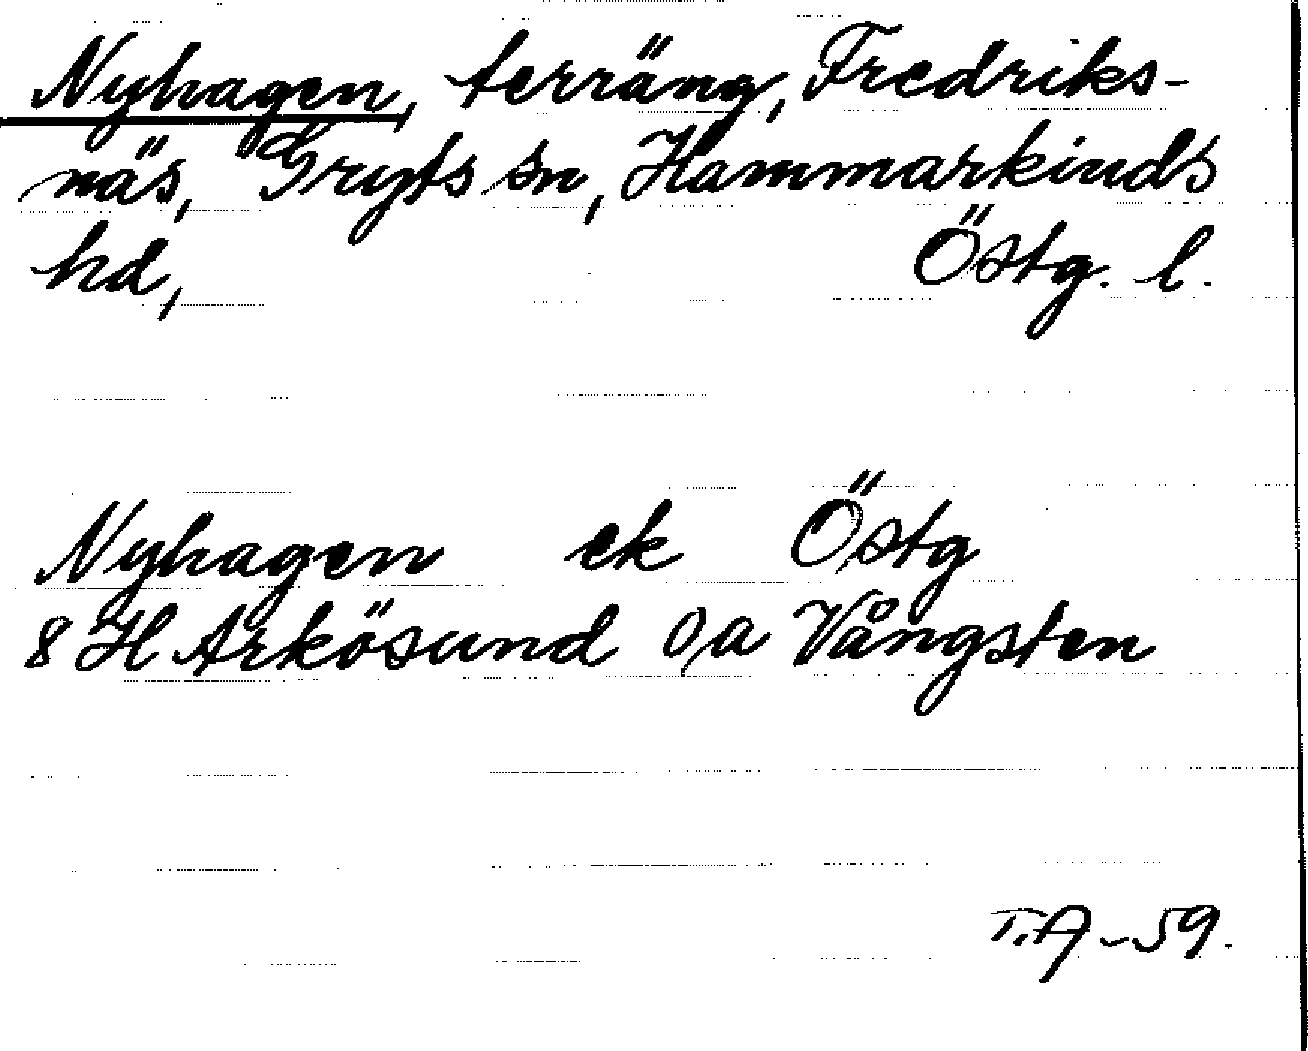 Nyhagen, terräng, Fredriks-
näs, Gryts sn, Hammarkinds
hd, Östg. l.
Nyhagen ek Östg
8 H Arkösund 0/a Vångsten
T.A -59.